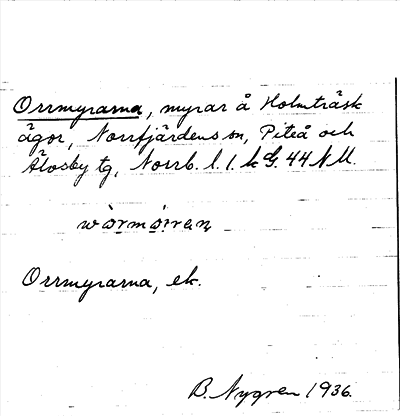 Orrmyrarna, myrar å Holmträsk
ägor, Norrfjärdens sn, Piteå och
Älvsby tg, Norrb. l. 1. k G. 44 N U.
Orrmyrarna, ek.
B. Nygren 1936.